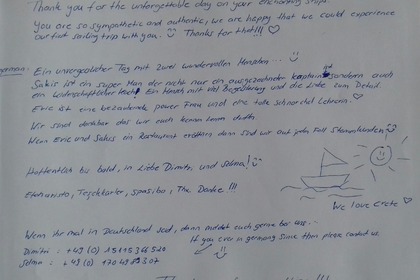 Thank you for the unforgetable day on your enchanting ship.
You are so sympathetic and authentic, we are happy that we could experience
our first sailing trip with you. Thanks for that!!!
german:
Ein unvergesslicher Tag mit zwei wundervollen Menschen ...
Sakis ist ein super Man der nicht nur ein ausgezeichneter kapitän ist sondern auch
ein leidenschaftlicher Koch! Ein Mensch mit viel Begeisterung und die Liebe zum Detail.
Erie ist eine bezaubernde power Frau und eine tolle schnorchel Lehrerin.
Wir sind dankbar das wir euch kennen lernen durften.
Wenn Erie und Sakis ein Restaurant eröffnen dann sind wir auf jeden Fall Stammkunden!
Hoffentlich bis bald, in Liebe Dimitri, und Selma!
Efcharisto, Teşekkürler, Spasibo, Thx, Danke !!!
We love Crete
Wenn ihr mal in Deutschland seid, dann meldet euch gerne bei uns..
If you ever in germany since then please contact us.
Dimitri : +49 (0)
Selma : +49 (0)